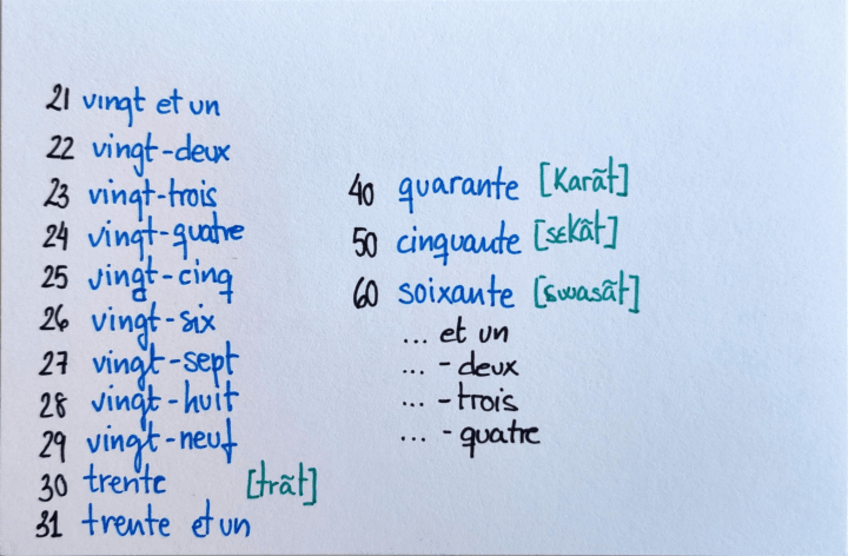 21 vingt et un
22 vingt-deux
23 vingt-trois
24 vingt-quatre
25 vingt-cinq
26 vingt-six
27 vingt-sept
28 vingt-huit
29 vingt-neuf
30 trente [trãt]
31 trente et un
40 quarante [Karãt]
50 cinquante [sɛkãt]
60 soixante [swasãt]
... et un
... - deux
... - trois
... - quatre